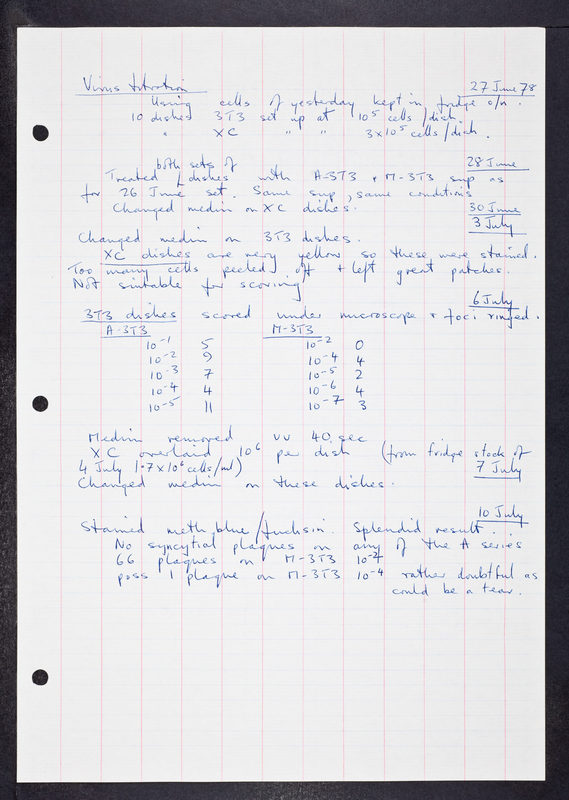 Virus titration 27 June 78
Using cells of yesterday kept in fridge o/n.
10 dishes 3T3 set up at 10⁵ cells/dish
" XC " " 3x10⁵ cells/dish.
28 June
both sets of
Treated / dishes with A-3T3 + M-3T3 sup as
for 26 June set. Same sup, same conditions
Changed medm on XC dishes. 30 June
3 July
Changed medm on 3T3 dishes.
XC dishes are very yellow so these were stained.
Too many cells peeled off + left great patches.
Not suitable for scoring
6 July
3T3 dishes scored under microscope + foci ringed.
A-3T3 M-3T3
10⁻¹ 5 10⁻² 0
10⁻² 9 10⁻⁴ 4
10⁻³ 7 10⁻⁵ 2
10⁻⁴ 4 10⁻⁶ 4
10⁻⁵ 11 10⁻⁷ 3
Medm removed UV 40 sec
XC overlaid 10⁶ per dish (from fridge stock of
4 July 1.7x10⁶ cells/ml) 7 July
Changed medm on these dishes.
10 July
Stained meth. blue/fuchsin. Splendid result.
No syncytial plaques on any of the A series
66 plaques on M-3T3 10⁻²
poss 1 plaque on M-3T3 10⁻⁴ rather doubtful as
could be a tear.